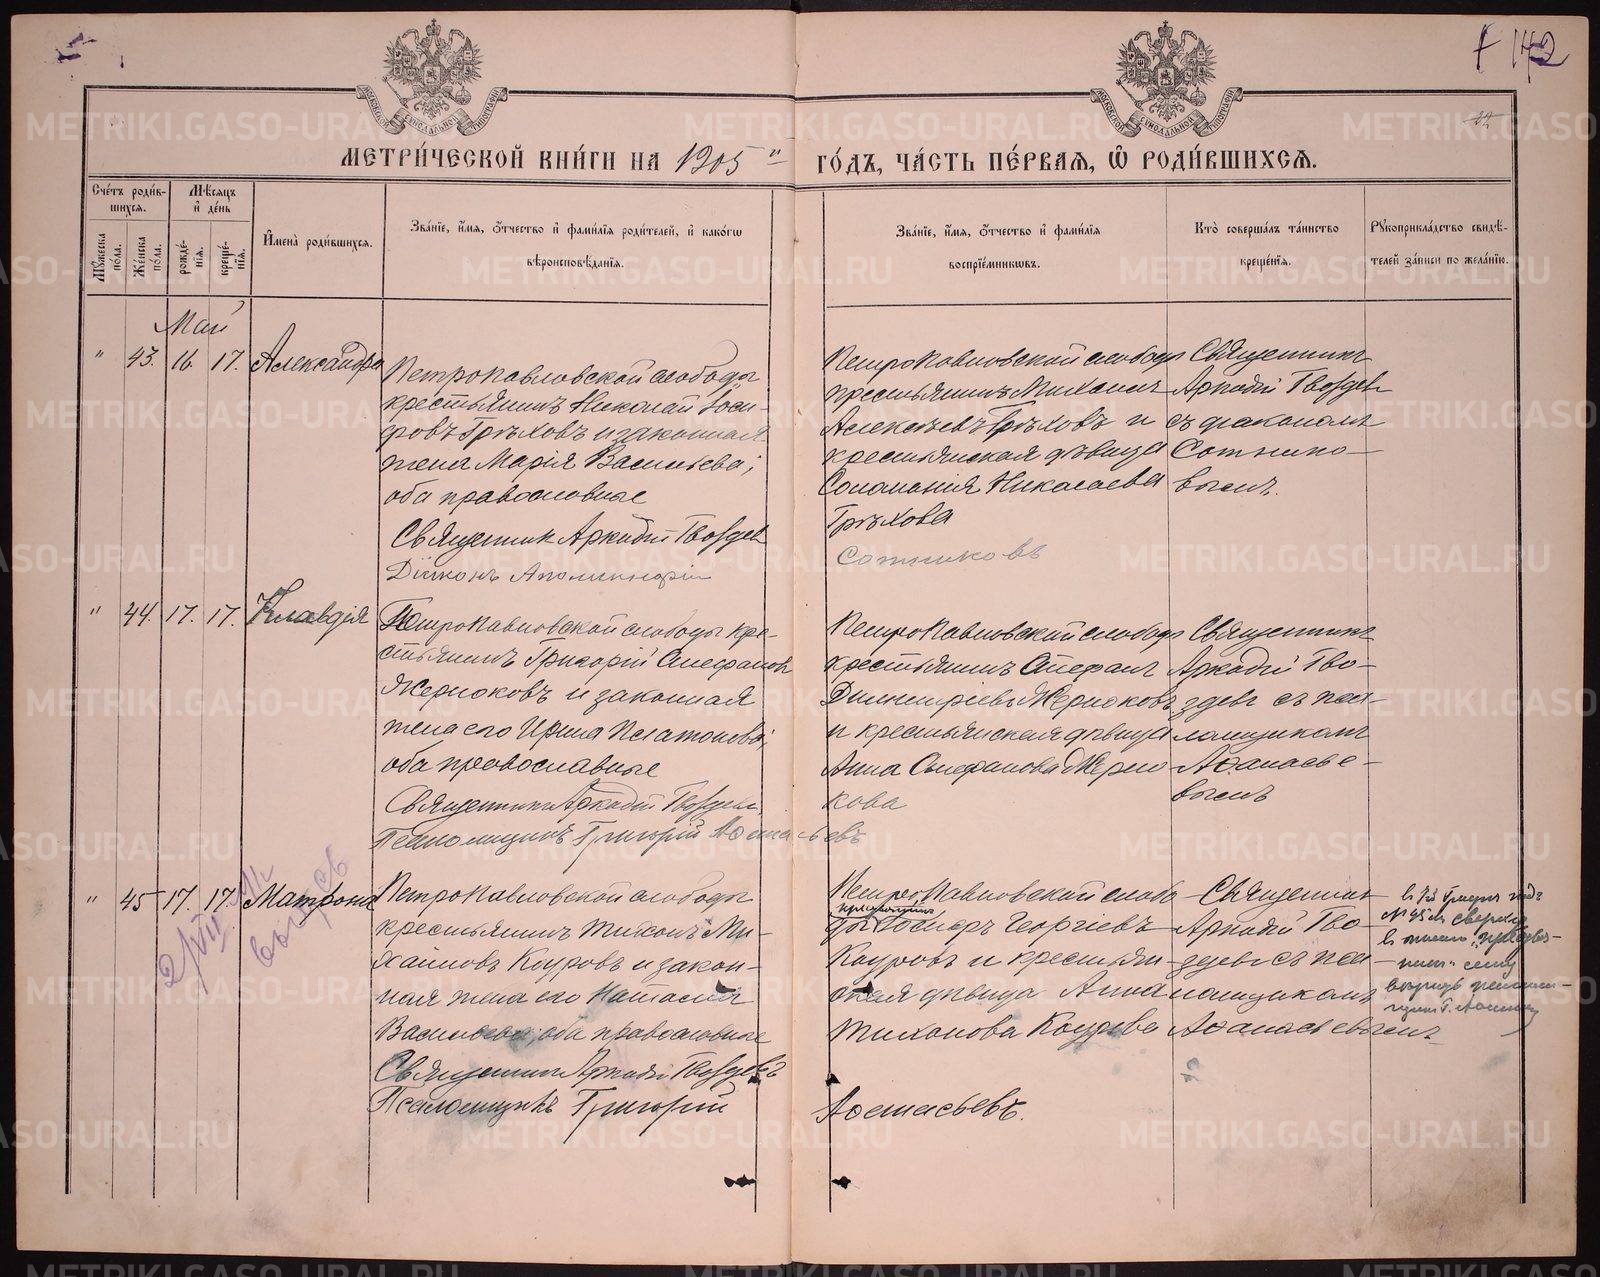 142
МЕТРИ́ЧЕСКОЙ КНИ́ГИ НА 1905 ГО́ДЪ, ЧА́СТЬ ПЕ́РВАЯ, Ѡ РОДИ́ВШИХСЯ.
Сче́тъ роди́в-
шихся.
Му́жеска по́ла.
Же́нска по́ла.
Мѣ́сяцъ
и҆ де́нь
рожде́-
нїя.
креще́-
нїя.
И҆мена̀ роди́вшихся.
Зва́нїе, и҆́мя, ѻ҆́тчество и҆ фами́лїя роди́телей, и҆ како́гѡ
вѣроисповѣ́данїя.
Зва́нїе, и҆́мя, ѻ҆́тчество и҆ фами́лїя
воспрїе́мникѡвъ.
Кто̀ соверша́лъ та́инство
креще́нїя.
Рꙋкоприкла́дство свидѣ́-
телей за́писи по жела́нїю.
Май
" 43. 16. 17. Александра
Петропавловской слободы
крестьянинъ Николай Іоси-
фовъ Грѣховъ и законная
жена Марія Васильева;
оба православные
Священник Аркадій Гвоздев
Діаконъ Аполинарій
Петропавловской слободы
крестьянинъ Михаилъ
Алексѣевъ Грѣховъ и
крестьянская дѣвица
Соломонія Николаева
Грѣхова
Сотниковъ
Священникъ
Аркадій Гвоздев
съ діакономъ
Сотнико-
вымъ.
" 44. 17. 17. Клавдія
Петропавловской слободы кре-
стьянинъ Григорій Стефановъ
Жерноковъ и законная
жена его Ирина Платонова;
оба православные
Священникъ Аркадій Гвоздевъ
Псаломщикъ Григорій Аѳанасьевъ
Петропавловской слободы
крестьянинъ Стефанъ
Димитріевъ Жерноковъ
и крестьянская дѣвица
Анна Стефанова Жерно-
кова
Священникъ
Аркадій Гво-
здевъ съ пса-
ломщикомъ
Аѳанасье-
вымъ
" 45 17. 17. Матрона
выпись
Петропавловской слободы
крестьянинъ Тихонъ Ми-
хайловъ Коуровъ и закон-
ная жена его Наталія
Васильева; оба православные
Священникъ Аркадій Гвоздевъ
Псаломщикъ Григорій
Петропавловской слобо-
крестьянинъ
ды Георгіевъ
Коуровъ и крестьян-
ская дѣвица Анна
Тихонова Коурова
Аѳанасьевъ.
Священник
Аркадій Гво-
здевъ съ пса-
ломщикомъ
Аѳанасьевымъ.
METRIKI.GASO-URAL.RU